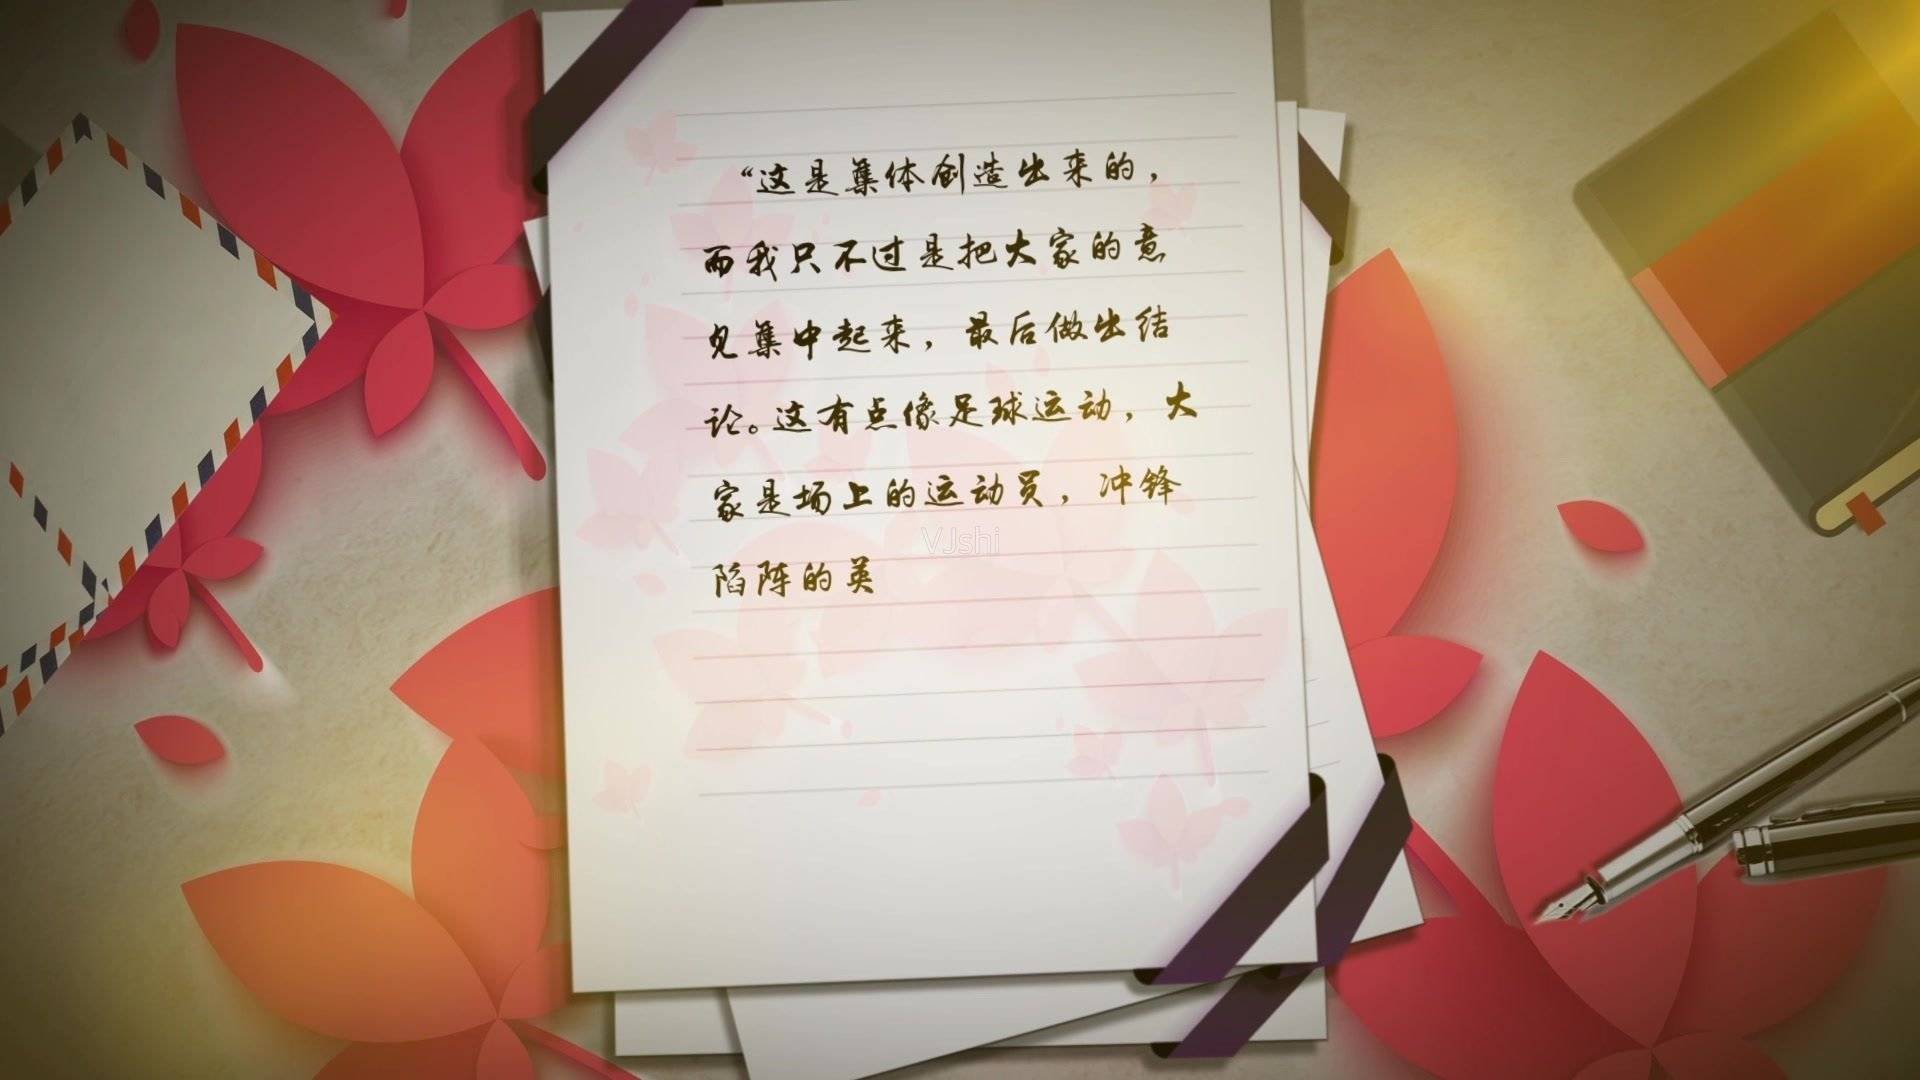 “这是集体创造出来的，
而我只不过是把大家的意
见集中起来，最后做出结
论。这有点像足球运动，大
家是场上的运动员，冲锋
陷阵的英
VJshi